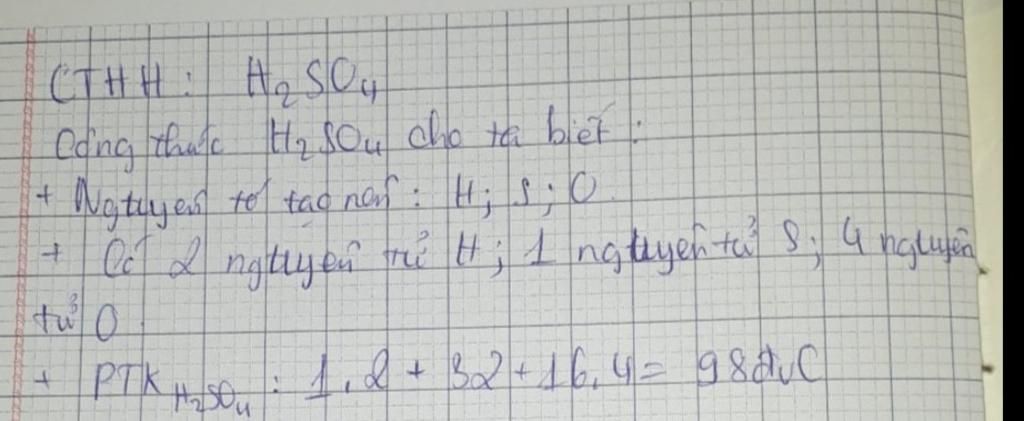 CTHH: H₂SO₄
Công thức H₂SO₄ cho ta biết:
+ Nguyên tố tạo nên: H; S; O.
+ Có 2 nguyên tử H; 1 nguyên tử S; 4 nguyên
tử O
+ PTK H₂SO₄: 1.2 + 32 + 16.4 = 98đvC